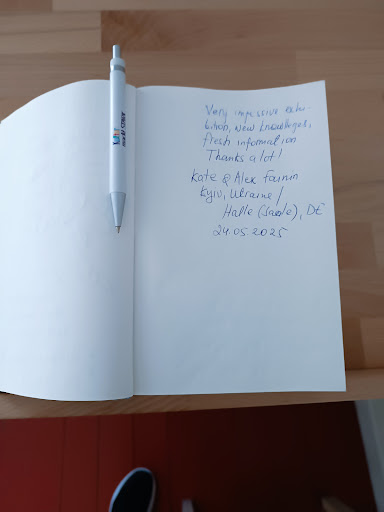 Very impessive exhi-
bition, new knowledges,
fresh information
Thanks a lot!
Kate & Alex Fainin
Kyiv, Ukraine /
Halle (Saale), DE
24.05.2025